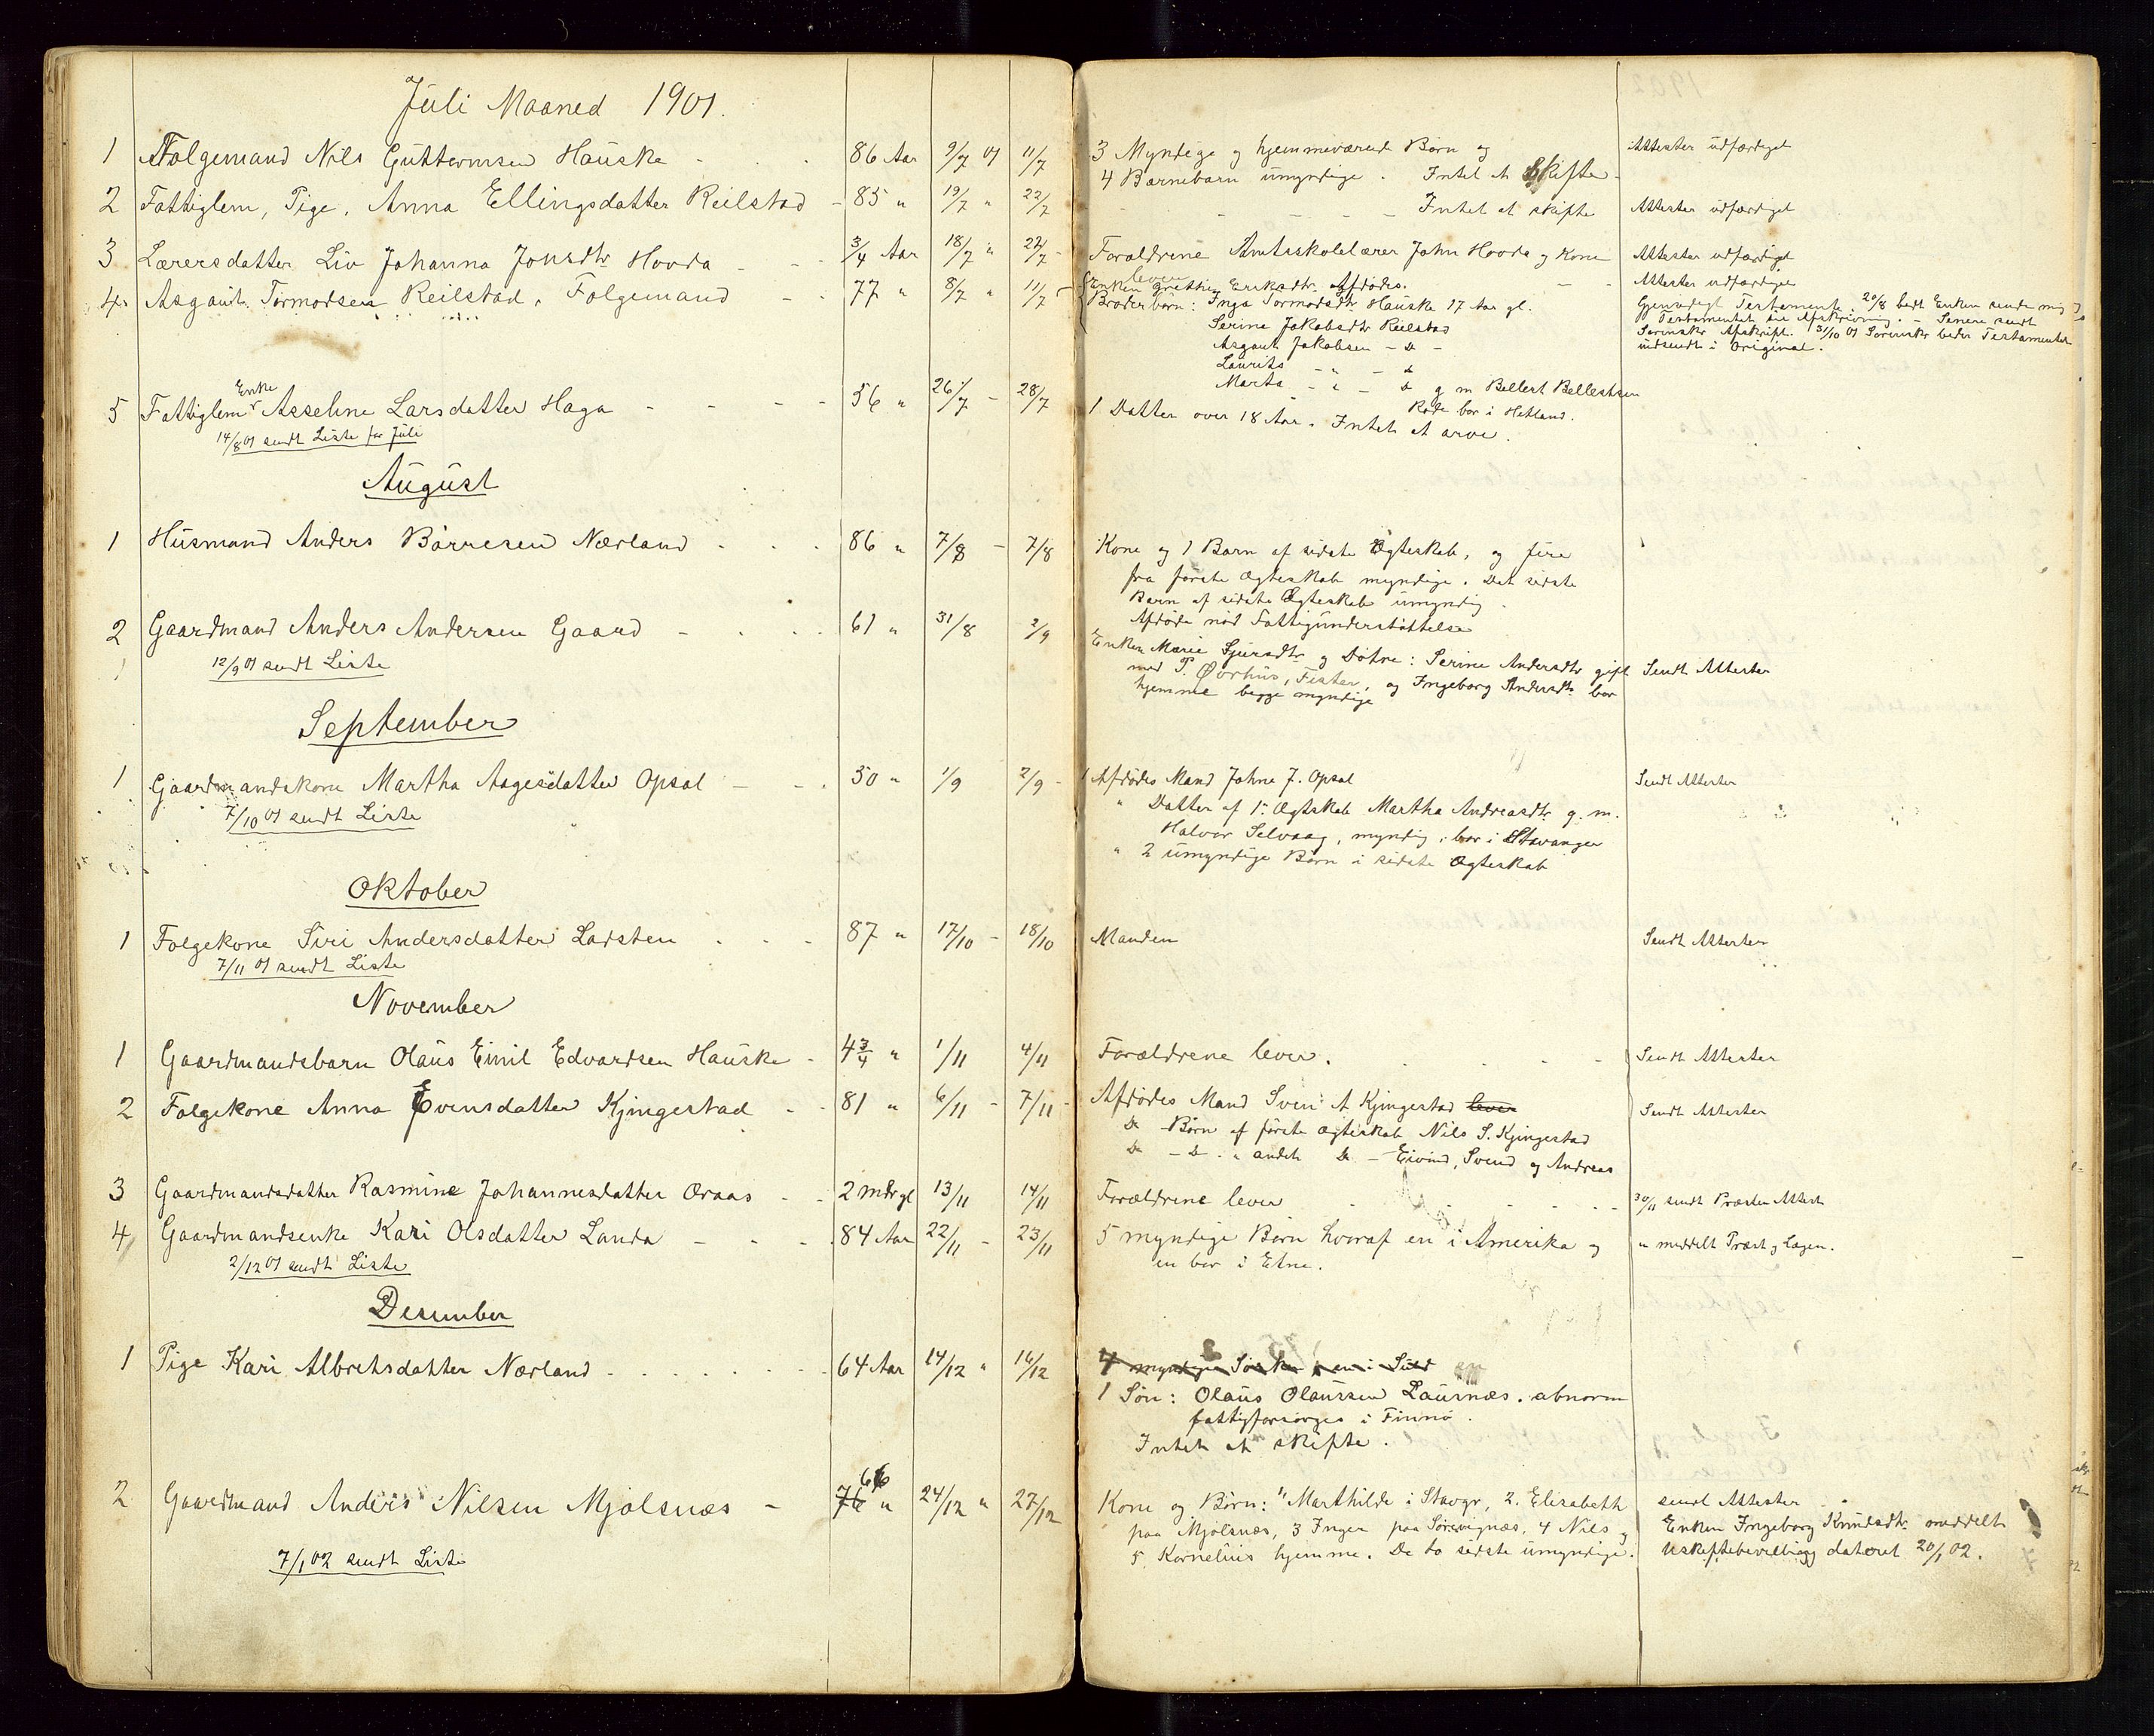 Juli Maaned 1901.
1 Folgemand Nils Guttormsen Hauske - 86 Aar 9/7 01 11/7 3 Myndige og hjemmeværende Børn og Attester udfærdiget
4 Barnebarn umyndige. Intet at Skifte
2 Fattiglem, Pige, Anna Ellingsdatter Reilstad - 85 " 19/7 " 22/7 Intet at skifte Attester udfærdiget
3 Lærersdatter Liv Johanna Jonsdtr Hovda 3/4 Aar 18/7 " 22/7 Forældrene Amtsskolelærer John Hovda og Kone Attester udfærdiget
4 Asgaut Tormodsen Reilstad, Folgemand 77 " 8/7 " 11/7 Enken Grethe Eriksdtr. Afdødes. Attester udfærdiget
lever
Broderbørn: Inga Tormodsdtr Hauske 17 Aar gl. Gjensidigt Testamente. 20/8 bedt Enken sende mig
Serine Jakobsdtr Reilstad Testamentet til Afskrivning. - Senere sendt
Asgaut Jakobsen - D - Sorenskr Afskrift. 31/10 01 Sorenskr beder Testamentet
Laurits - " - D indsendt i Original.
Marta - " - D g m Bellest Bellestsen
Enke
5 Fattiglem Asseline Larsdatter Haga 56 " 26/7 - 28/7 Rode bor i Hetland.
1 Datter over 18 Aar. Intet at arve.
14/8 01 sendt Liste for Juli
August
1 Husmand Anders Børresen Nærland 86 " 7/8 - 7/8 Kone og 1 Barn af sidste Ægteskab, og fire
fra første Ægteskab myndige. Det sidste
Barn af sidste Ægteskab umyndig.
Afdøde nød Fattigunderstøttelse
2 Gaardmand Anders Andersen Gaard - 61 " 31/8 2/9 Enken Marie Sjursdtr og Døtre: Serine Andersdtr gift Sendt Attester
12/9 01 sendt Liste
med P. Øvrhus, Fister, og Ingeborg Andersdtr bor
hjemme begge myndige
September
1 Gaardmandskone Martha Aagesdatter Opsal - 50 " 1/9 2/9 - Afdødes Mand Johne J. Opsal Sendt Attester
7/10 01 sendt Liste
" Datter af 1ste Ægtskab Martha Andreasdtr g. m.
Halvor Selvaag, myndig, bor i Stavanger
" 2 umyndige Børn i sidste Ægteskab
Oktober
1 Folgekone Siri Andersdatter Ladsten 87 " 17/10 - 18/10 Manden Sendt Attester
7/11 01 sendt Liste
November
1 Gaardmandsbarn Olaus Emil Edvardsen Hauske - 4 3/4 " 1/11 4/11 Forældrene lever. Sendt Attester
2 Folgekone Anna Evensdatter Kjingestad 81 " 6/11 - 7/11 - Afdødes Mand Sven A Kjingestad lever Sendt Attester
D - Børn af første Ægteskab Nils S. Kjingestad
D - D - " andet D - Eivind, Svend og Andreas
3 Gaardmandsdatter Rasmine Johannesdatter Øvaas 2 mdr gl 13/11 14/11 Forældrene lever 30/11 sendt Præsten Attest
4 Gaardmandsenke Kari Olsdatter Landa 84 Aar 22/11 - 23/11 5 myndige Børn hvoraf en i Amerika og " meddelt Præst og Lægen.
2/12 01 sendt Liste
en bor i Etne.
Desember
1 Pige Kari Albretsdatter Nærland 64 Aar 14/12 " 16/12 4 myndige Søsken, en i
1 Søn: Olaus Olaussen Laurnæs. abnorm
fattigforsørges i Finnø.
Intet at skifte.
66
2 Gaardmand Anders Nilsen Mjølsnæs - 76 " 24/12 " 27/12 Kone og Børn: 1 Marthilde i Stavgr, 2. Elisabeth sendt Attester
paa Mjølsnæs, 3 Inger paa Sørevignæs, 4 Nils og Enken Ingeborg Knudsdtr meddelt
7/1 02 sendt Liste
5. Kornelius hjemme. De to sidste umyndige. Uskiftebevilling dateret 20/1 02.